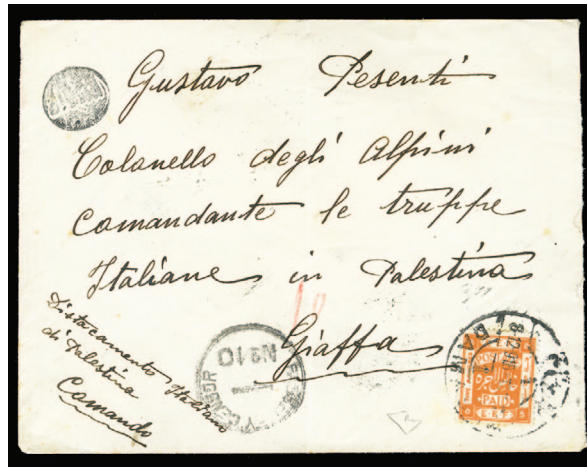 Gustavo Pesenti
Colonello degli Alpini
Comandante le truppe
Italiane in Palestina
Giaffa
Distaccamento Italiano
di Palestina
Comando
CENSOR
No 10
PAID
E.E.F.